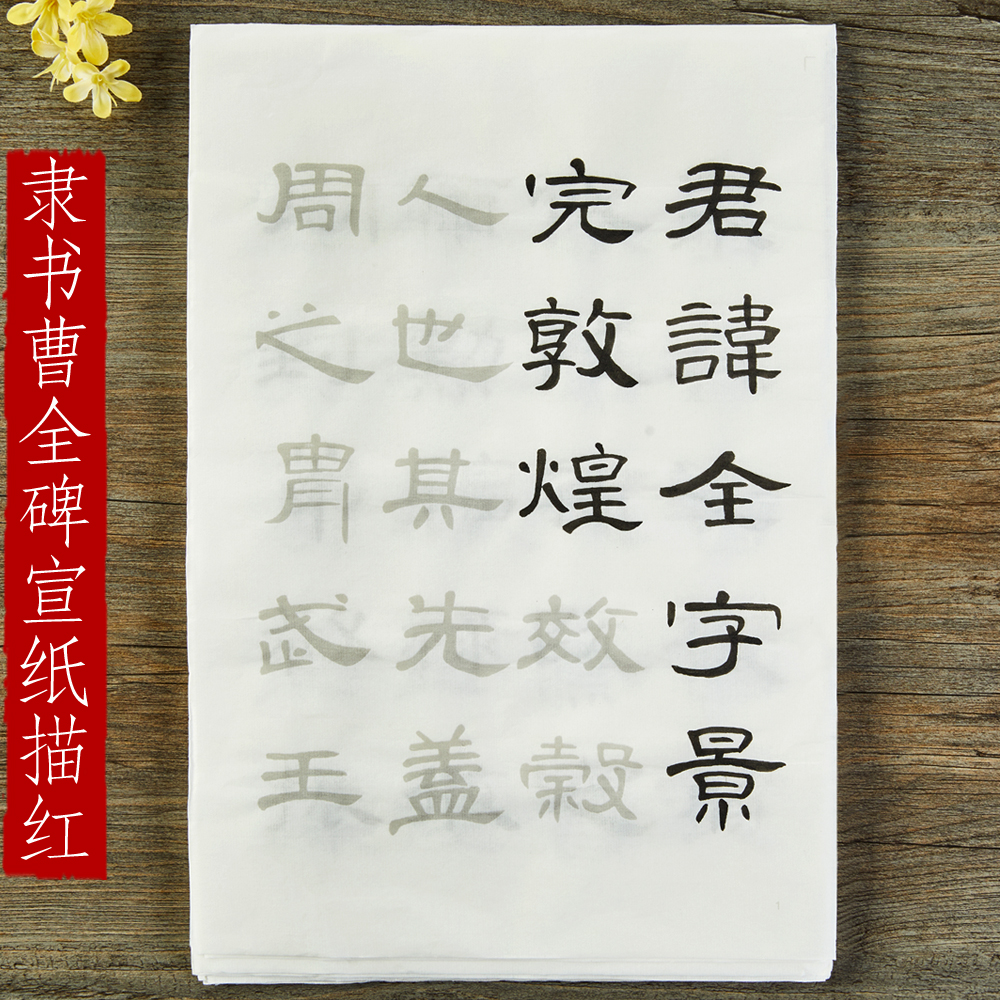 隶书曹全碑宣纸描红
君諱全字景
完敦煌效穀
人也其先盖
周之胄武王